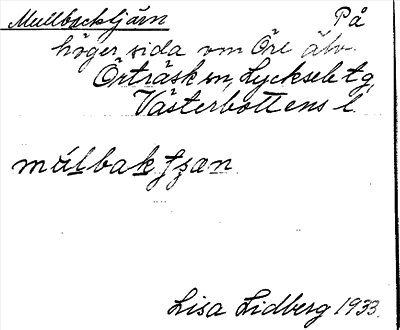 Mullbacktjärn På
höger sida om Öre älv.
Örträsk sn, Lycksele tg,
Västerbottens l.
Lisa Lidberg 1933.